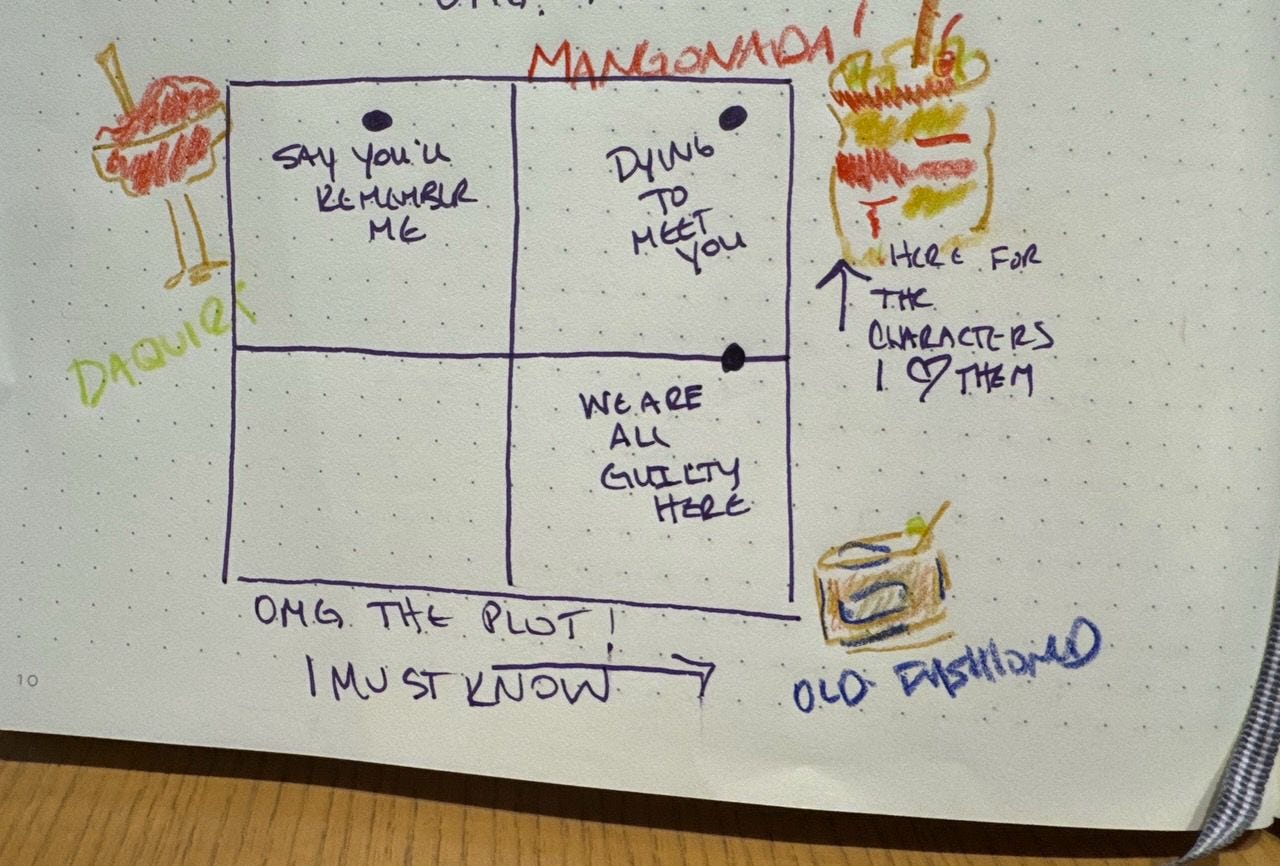 OMG.
MANGONADA!
SAY YOU'LL
REMEMBER
ME
DYING
TO
MEET
YOU
HERE FOR
THE
CHARACTERS
I ♡ THEM
DAQUIRI
WE ARE
ALL
GUILTY
HERE
OMG THE PLOT!
I MUST KNOW
OLD FASHIONED
10